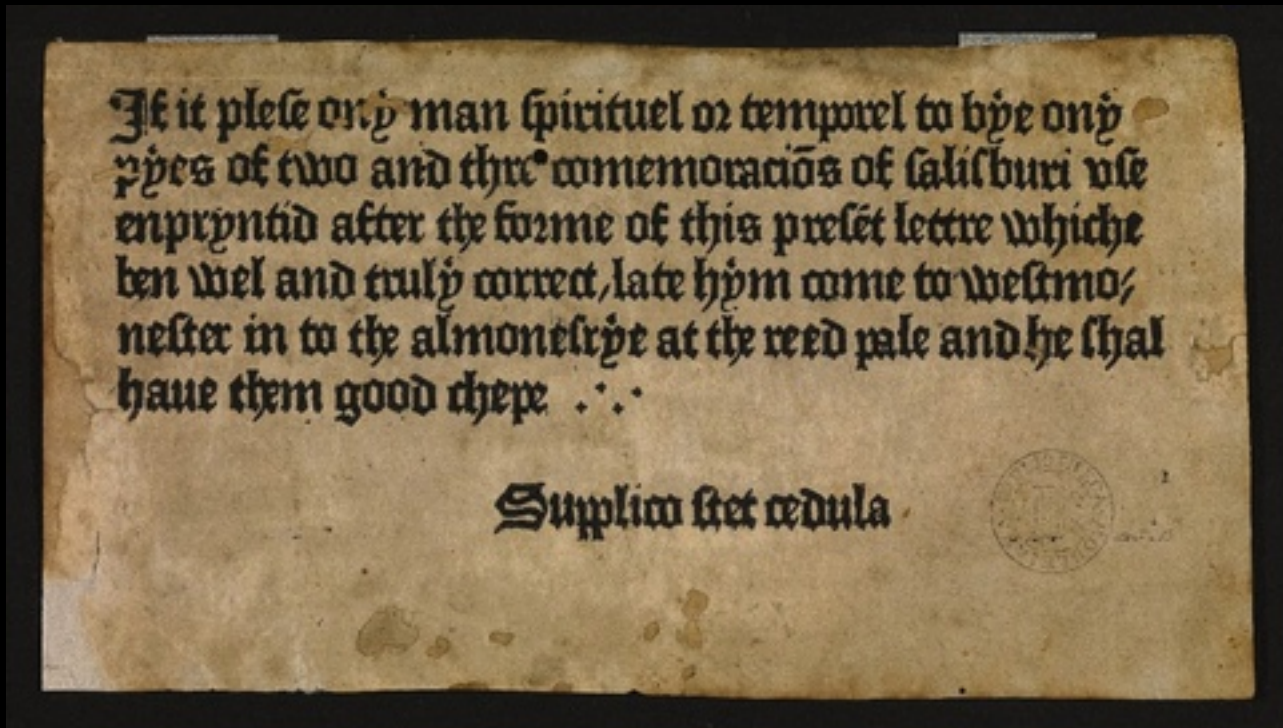 If it plese ony man spirituel or temporel to bye ony
pyes of two and thre comemoraciōs of salisburi vse
enpryntid after the forme of this presēt lettre whiche
ben wel and truly correct, late hym come to westmo/
nester in to the almonesrye at the reed pale and he shal
haue them good chepe
Supplico stet cedula